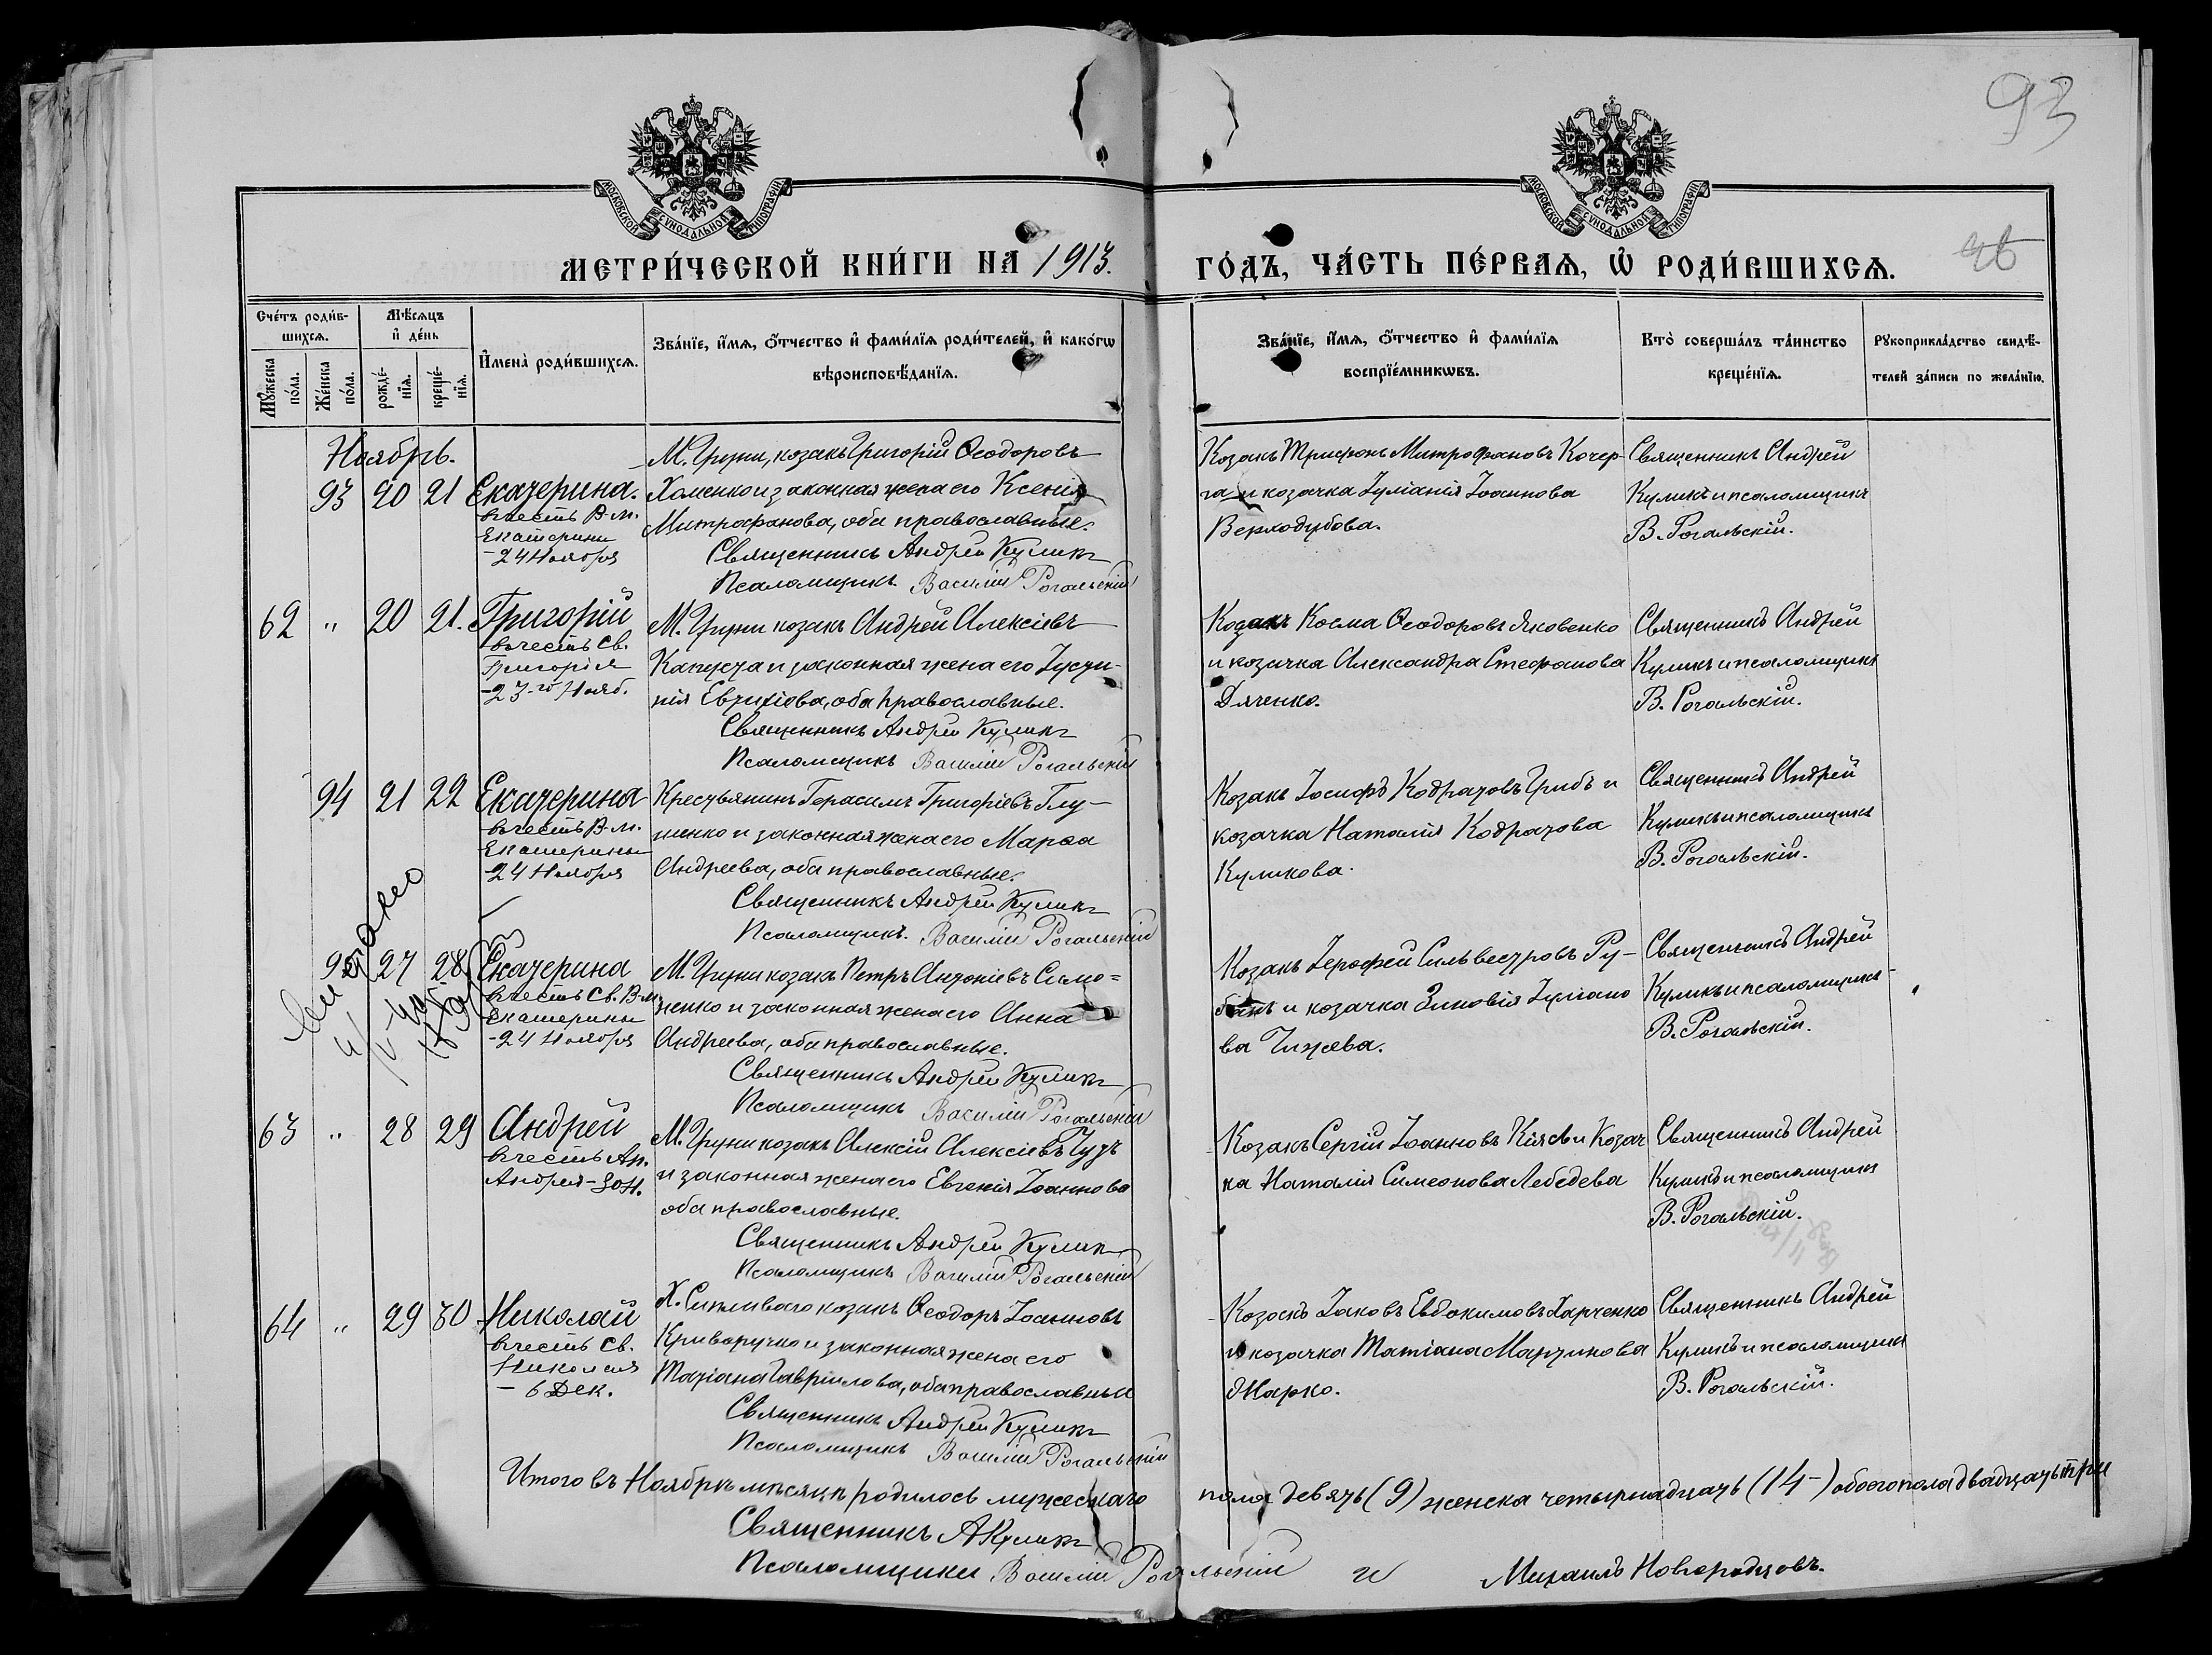 93
МОСКОВСКОЙ СѴНОДАЛЬНОЙ ТИПОГРАФІИ
МОСКОВСКОЙ СѴНОДАЛЬНОЙ ТИПОГРАФІИ
МЕТРИ́ЧЕСКОЙ КНИ́ГИ НА 1913.
ГО́ДЪ, ЧА́СТЬ ПЕ́РВАѦ, Ѡ҆ РОДИ́ВШИХСѦ.
Сче́тъ роди́в-
шихсѧ.
Мꙋ́жеска по́ла.
Же́нска по́ла.
Мѣ́сѧцъ
и҆ де́нь
рожде́-
нїѧ.
креще́-
нїѧ.
И҆мена̀ роди́вшихсѧ.
Зва́нїе, и҆́мѧ, ѻ҆́тчество и҆ фами́лїѧ роди́телей, и҆ како́гѡ
вѣроисповѣ́данїѧ.
Зва́нїе, и҆́мѧ, ѻ҆́тчество и҆ фами́лїѧ
воспрїе́мникѡвъ.
Кто̀ соверша́лъ та́инство
креще́нїѧ.
Рꙋкоприкла́дство свидѣ́-
телей за́писи по жела́нїю.
Ноябрь.
93 20 21 Екатерина.
въ честь В-м.
Екатерины
-24 Ноября
М. Груни, козакъ Григорій Ѳеодоровъ
Хоменко и законная жена его Ксенія
Митрофанова, оба православные.
Священникъ Андрей Куликъ
Псаломщикъ Василій Рогальскій
Козакъ Трифонъ Митрофановъ Кочер-
га и козачка Іуліанія Іоаннова
Верходубова.
Священникъ Андрей
Куликъ и псаломщикъ
В. Рогальскій.
62 " 20 21. Григорій
въ честь Св.
Григорія
-23-го Нояб.
М. Груни козакъ Андрей Алексіевъ
Капуста и законная жена его Іусти-
нія Евтихіева, оба православные.
Священникъ Андрей Куликъ
Псаломщикъ Василій Рогальскій
Козакъ Косма Ѳеодоровъ Яковенко
и козачка Александра Стефанова
Дяченко.
Священникъ Андрей
Куликъ и псаломщикъ
В. Рогальскій.
94 21 22 Екатерина
въ честь В-м.
Екатерины
-24 Ноября
Крестьянинъ Герасимъ Григоріевъ Глу-
шенко и законная жена его Марѳа
Андреева, оба православные.
Священникъ Андрей Куликъ
Псаломщикъ. Василій Рогальскій
Козакъ Іосифъ Кодратовъ Грибъ и
козачка Наталія Кодратова
Куликова.
Священникъ Андрей
Куликъ и псаломщикъ
В. Рогальскій.
95 27 28 Екатерина
въ честь Св. В-м.
Екатерины
-24 Ноября
М. Груни козакъ Петръ Антоніевъ Симо=
ненко и законная жена его Анна
Андреева, оба православные.
Священникъ Андрей Куликъ
Псаломщикъ Василій Рогальскій
Козакъ Іерофей Сильвестровъ Ру-
банъ и козачка Зиновія Іуліано
ва Чижева.
Священникъ Андрей
Куликъ и псаломщикъ
В. Рогальскій.
63 " 28 29 Андрей
въ честь Ап.
Андрея-30 Н.
М. Груни козакъ Алексій Алексіевъ Гузь
и законная жена его Евгенія Іоаннова
оба православные.
Священникъ Андрей Куликъ
Псаломщикъ Василій Рогальскій
Козакъ Сергій Іоанновъ Кіяс и козач
ка Наталія Симеонова Лебедева
Священникъ Андрей
Куликъ и псаломщикъ
В. Рогальскій.
64 " 29 30 Николай
въ честь Св.
Николая
- 6 Дек.
Х. Сипливаго козакъ Ѳеодоръ Іоанновъ
Криворучко и законная жена его
Татіана Гавріилова, оба православные
Священникъ Андрей Куликъ
Псаломщикъ Василій Рогальскій
Козакъ Іаковъ Евдокимовъ Харченко
и козачка Татіана Мартинова
Жарко.
Священникъ Андрей
Куликъ и псаломщикъ
В. Рогальскій.
Итого въ Ноябрѣ мѣсяцѣ родилось мужескаго пола девять (9) женска четырнадцать (14-) обоего пола двадцать три
Священникъ А Куликъ
Псаломщики Василій Рогальскій и Михаилъ Новгородцовъ.